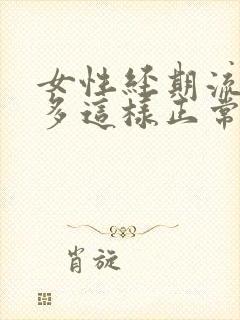 女性经期流
多這樣正常
肖旋